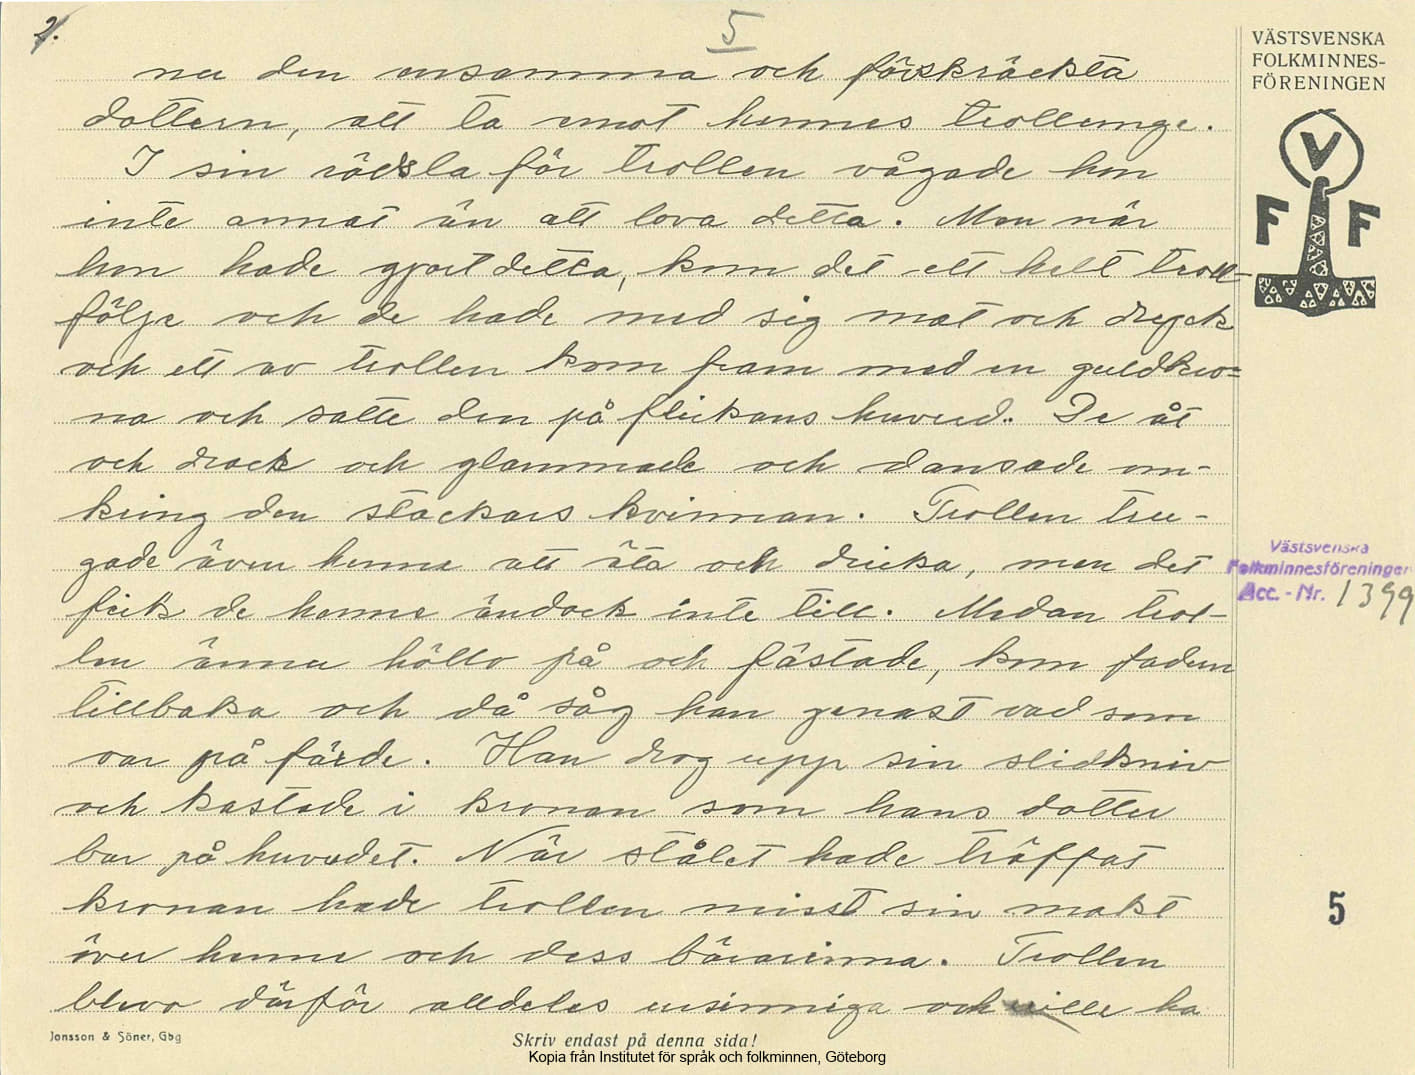 2.
5
VÄSTSVENSKA
FOLKMINNES-
FÖRENINGEN
V
F F
nu den ensamma och förskräckta
dottern, att ta emot hennes trollunge.
I sin rädsla för trollen vågade hon
inte annat än att lova detta. Men när
hon hade gjort detta, kom det ett helt troll-
följe och de hade med sig mat och dryck
och ett av trollen kom fram med en guldkro=
na och satte den på flickans huvud. De åt
och drack och glammade och dansade om-
kring den stackars kvinnan. Trollen tru-
gade även henne att äta och dricka, men det
fick de henne ändock inte till. Medan trol-
len ännu höllo på och fästade, kom fadern
tillbaka och då såg han genast vad som
var på färde. Han drog upp sin slidkniv
och kastade i kronan som hans dotter
bar på huvudet. När stålet hade träffat
kronan hade trollen misst sin makt
över henne och dess bärarinna. Trollen
blevo därför alldeles ursinniga och ville ha
Västsvenska
Folkminnesföreningen
Acc. - Nr. 1399
5
Jonsson & Söner, Gbg
Skriv endast på denna sida!
Kopia från Institutet för språk och folkminnen, Göteborg